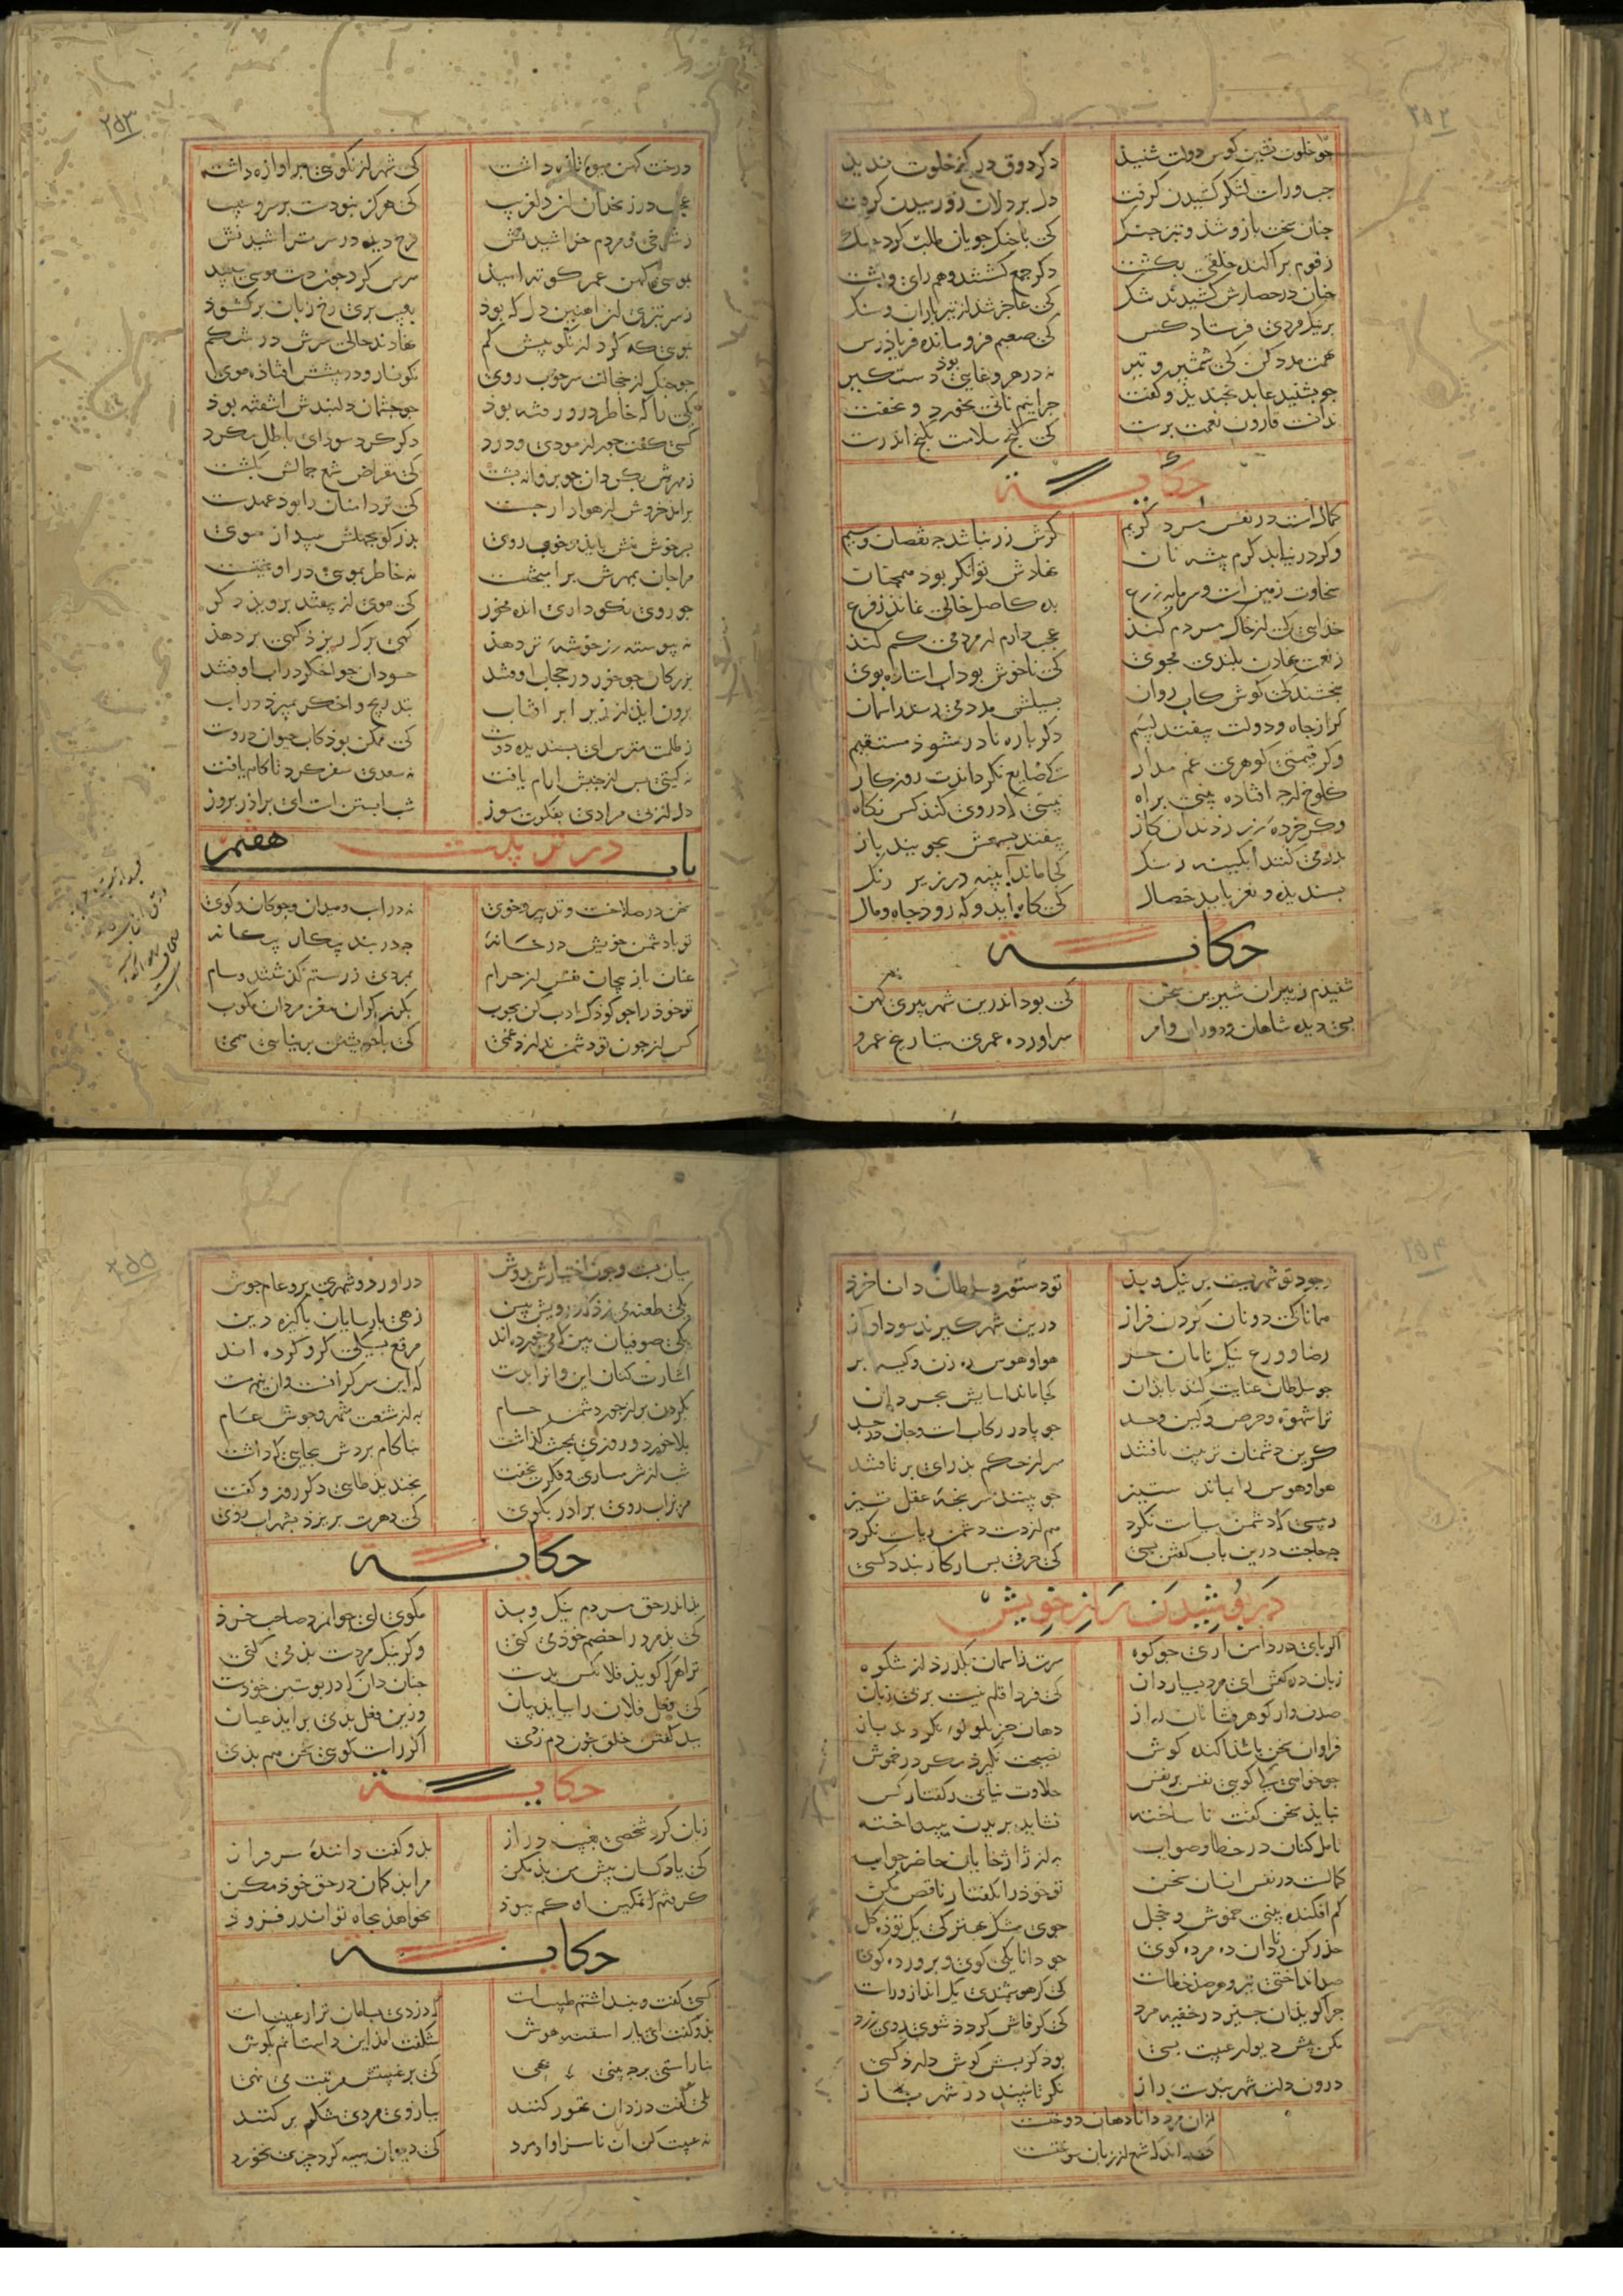 ۲۵۲
جو خلوت نشین کوس دولت شنیذ دکر ذوق در کنج خلوت ندیذ
جب و راست لشکر کشیدن کرفت دل بردلان زو رمیدن کرفت
جنان سخت بازو شذ و تیز جنک کی با جنک جویان طلب کرد جنک
ز قوم براکنده خلقی بکشت دکر جمع کشتند و هم رای و بشت
جنان در حصارش کشیدند تنک کی عاجز شذ از تیر باران و سنک
بر نیک مردی فرستاد کس کی صعبم فرو مانده فریاذ رس
بهمت مدد کن کی شمشیر و تیر نه در هر وغایی بوذ دستکیر
جو بشنید عابد بخندیذ و کفت جرا نیم نانی نخورد و نخفت
ندانست قارون نعمت برست کی کنج سلامت بکنج اندرست
حکایة
کمالست در نفس مرد کریم کرش زر نباشد جه نقصان و سیم
وکر در نیابد کرم پیشه نان نهادش توانکر بود همجنان
سخاوت زمینست و سرمایه زرع بده کاصل خالی نماند ز فرع
خدایی کی از خاک مردم کند عجب دارم ار مردمی کم کند
ز نعمت نهادن بلندی مجوی کی ناخوش بود اب استاده بوی
ببخشندکی کوش کاب روان بسیلش مدد می رسد ز اسمان
کر از جاه و دولت بیفتد لئیم دکر باره نادر شوذ مستقیم
وکر قیمتی کوهری غم مدار کی ضایع نکرداندت روزکار
کلوخ ارجه افتاده بینی براه نبینی که در وی کند کس نکاه
وکر خرده زر ز دندان کاز بیفتد بشمعش بجویند باز
بدر می کنند ابکینه ز سنک کجا ماند آیینه در زیر زنک
بسندیذه و نغز باید خصال کی کاه اید و که روذ جاه و مال
حکایة
شنیدم ز پیران شیرین سخن کی بود اندرین شهر پیری کهن
بسی دیده شاهان و دوران و امر سر اورده عمری ز تاریخ عمرو
۲۵۳
درخت کهن میوه تازه داشت کی شهر از نکویی پر اوازه داشت
عجب در زنخدان ان دلفریب کی هرکز نبودست بر سرو سیب
ز شوخی و مردم خراشیدنش فرح دید در سر تراشیدنش
بموسی کهن عمر کوته امیذ سرش کرد جون دست موسی سپید
ز سر تیزی ان اهنین دل که بود بعیب پری رخ زبان برکشوذ
بمویی که کرد از نکوییش کم نهادند حالی سرش در شکم
جو جنک از خجالت سر خوب روی نکونسار و در پیشش افتاذه موی
کی را که خاطر درو رفته بوذ جو جشمان دلبندش اشفته بوذ
کسی کفت جور ازمودی و درد دکر کرد سودای باطل مکرد
ز مهرش بکردان جو بروانه بشت کی مقراض شمع جمالش بکشت
برامد خروش از هوادار جست کی تر دامنان را بود عهد سست
بسر خوش منش باید و خوب روی بدر کو بجهلش بینداز موی
مرا جان بمهرش برامیختست نه خاطر بمویی در اویختست
جو روی نکو داری انده مخور کی موی ار بیفتد بروید دکر
نه پیوسته رز خوشه تر دهذ کهی برک ریزذ کهی بر دهذ
بزرکان جو خور در حجاب اوفتند حسودان جو اخکر در اب اوفتند
برون اید از زیر ابر افتاب بتدریج و اخکر بمیرد در اب
ز ظلمت مترس ای بسندیده دوست کی ممکن بوذ کاب حیوان دروست
نه کیتی بس از جنبش ارام یافت نه سعدی سفر کرد تا کام یافت
دل از بی مرادی بفکرت مسوز شب ابستنست ای براذر بروز
باب هفتم در تربیت
سخن در صلاحست و تدبیر و خوی نه در اسب و میدان و جوکان و کوی
تو با دشمن خویش در خانه جه در بند پیکار بیکانه
عنان باز پیجان نفس از حرام بمردی ز رستم کذشتند و سام
تو خوذ را جو کوذک ادب کن بجوب بکرز کران مغز مردان مکوب
کس از جون تو دشمن ندارد غمی کی با خویشتن بر نیایی همی
۲۵۴
وجود تو شهریست بر نیک و بذ تو دستور و سلطان دانا خرذ
همانا کی دونان کردن فراز درین شهر کبرند و سودا و از
رضا و ورع نیک نامان حر هوا و هوس ره زن و کیسه بر
جو سلطان عنایت کند با بذان کجا ماند اسایش بخردان
ترا شهوة و حرص و کین و حسد جو با در رکابست و جان در جسد
کر این دشمنان تربیت یافتند سر از حکم و رای تو بر تافتند
هوا و هوس را نماند ستیز جو بینند سر پنجه عقل تیز
رییسی که دشمن سیاست نکرد هم از دست دشمن ریاست نکرد
جه حاجت درین باب کفتن بسی کی حرفی بس ار کار بندد کسی
در بوشیدن راز خویش
اکر پای در دامن اری جو کوه سرت ز اسمان بکذرد از شکوه
زبان درکش ای مرد بسیار دان کی فردا قلم نیست بر بی زبان
صدف وار کوهر شناسان راز دهان جز بلولو نکردند باز
فراوان سخن باشذ اکنده کوش نصیحت نکیرذ مکر در خموش
جو خواهی کی کویی نفس بر نفس حلاوت نیابی ز کفتار کس
نباید سخن کفت نا ساخته نشاید بریدن نینداخته
تامل کنان در خطا و صواب به از ژاژخایان حاضر جواب
کمالست در نفس انسان سخن تو خوذ را بکفتار ناقص مکن
کم افکنده بینی خموش و خجل جوی مشک بهتر کی یک توذه کل
حذر کن ز نادان ده مرده کوی جو دانا یکی کوی و پرورده کوی
صد انداختی تیر و هر صد خطاست کی کر هوشمندی یک انداز و راست
جرا کوید ان جیز در خفیه مرد کی کر فاش کردذ شوی روی زرد
مکن پیش دیوار غیبت بسی بود کز بسش کوش دارد کسی
درون دلت شهر بندست راز نکر تا نبیند در شهر باز
ازان مرد دانا دهان دوختست
کی بیند که شمع از زبان سوختست
۲۵۵
میان بست و بی اختیارش بدوش دراورد و شهری برو عام جوش
یکی طعنه می زذ که درویش بین زهی بارسایان باکیزه دین
یکی صوفیان بین که می خورده اند مرقع بسیکی کرو کرده اند
اشارت کنان این و ان را بدست که این سر کرانست و ان نیم مست
بکردن بر از جور دشمن حسام به از شنعت شهر و جوش عوام
بلا خورد و روزی بمحنت کذاشت بناکام بردش بجایی که داشت
شب از شرمساری و فکرت نخفت بخندید طایی دکر روز و کفت
مریز اب روی برادر بکوی کی دهرت بریزد بشهر اب روی
حکایة
بذ اندر حق مردم نیک و بذ مکوی ای جوانمرد صاحب خرذ
کی بد مرد را خصم خوذ می کنی وکر نیک مردست بد می کنی
ترا هر که کوید فلان کس بدست جنان دان که در بوستین خوذست
کی فعل فلان را بباید بیان وزین فعل بدی براید عیان
ببد کفتن خلق جون دم زدی اکر راست کویی سخن هم بدی
حکایة
زبان کرد شخصی بغیبت دراز بدو کفت دانندهٔ سرفراز
کی یاد کسان پیش من بد مکن مرا بد کمان در حق خوذ مکن
کرفتم ز تمکین او کم ببوذ نخواهذ بجاه تو اندر فزود
حکایة
کسی کفت و بنداشتم طیبتست که دزدی بسامان تر از غیبتست
بدو کفتم ای یار اشفته هوش شکفت امد این داستانم بکوش
بناراستی در جه بینی بهی کی بر غیبتش مرتبت می نهی
بلی کفت دزدان تهور کنند ببازوی مردی شکم پر کنند
نه غیبت کن ان ناسزاوار مرد کی دیوان سیه کرد و جیزی نخورد